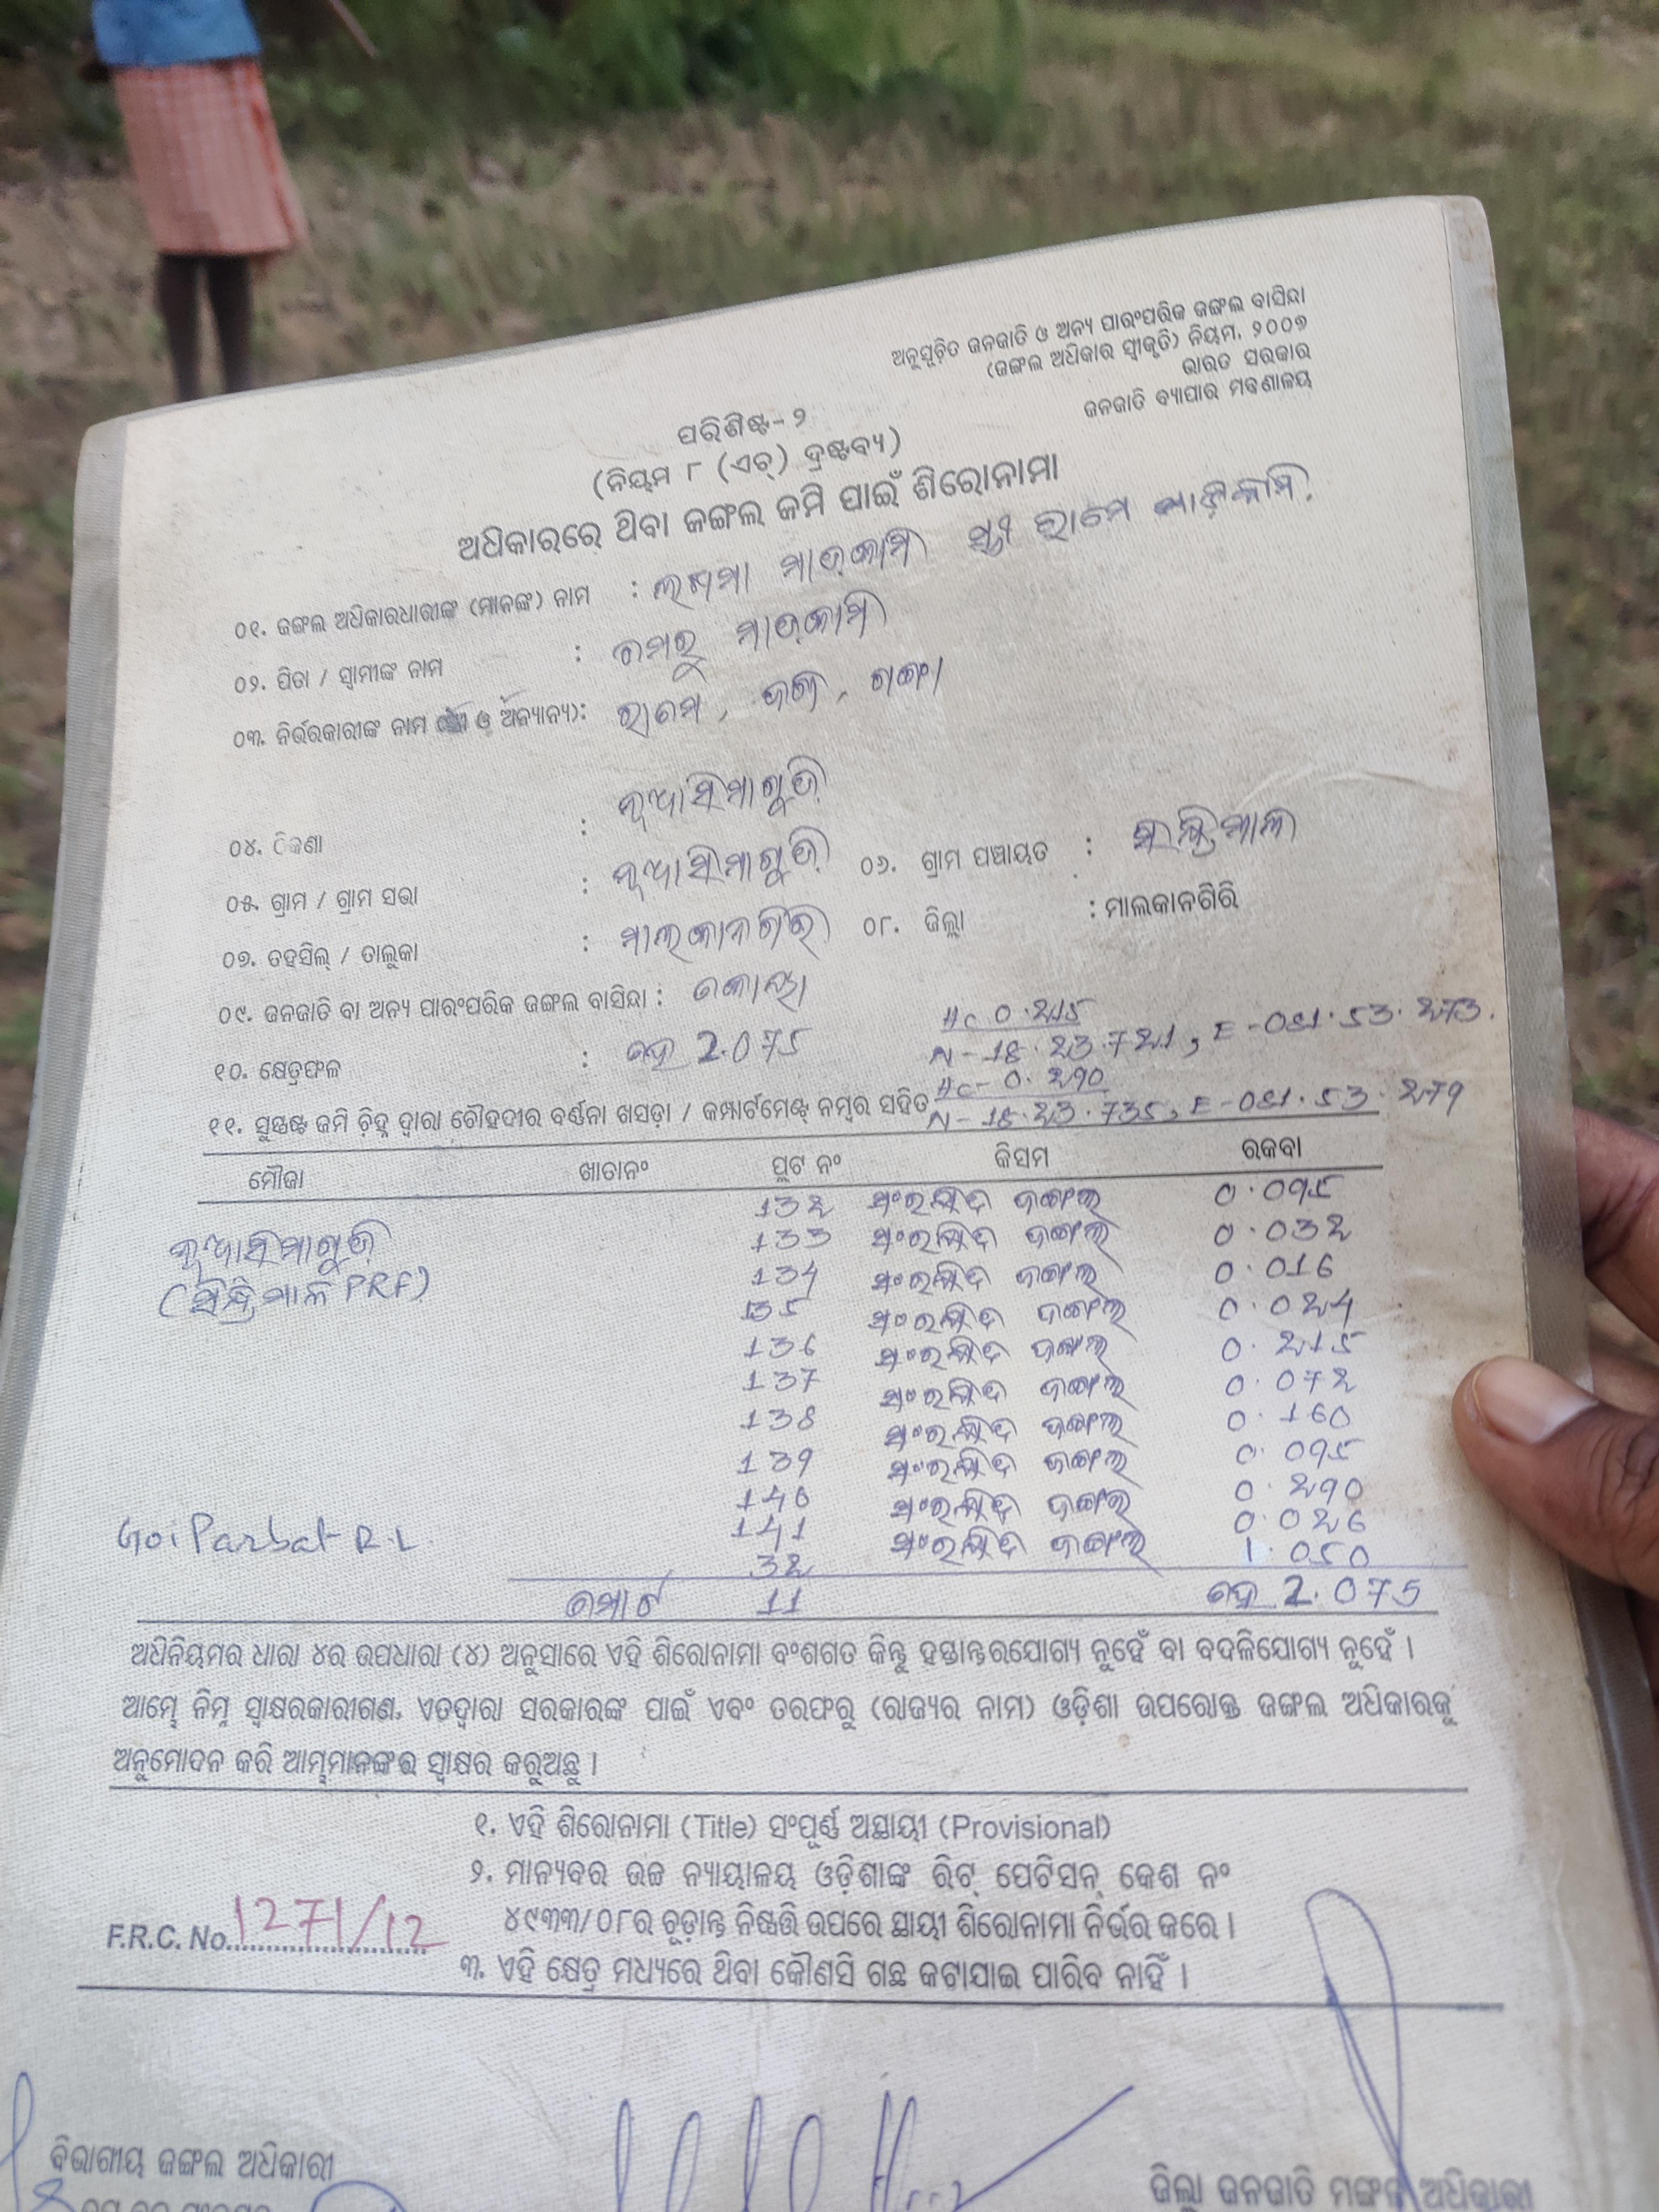 ଅନୁସୂଚିତ ଜନଜାତି ଓ ଅନ୍ୟ ପାରଂପରିକ ଜଙ୍ଗଲ ବାସିନ୍ଦା
(ଜଙ୍ଗଲ ଅଧିକାର ସ୍ୱୀକୃତି) ନିୟମ, ୨୦୦୭
ଭାରତ ସରକାର
ଜନଜାତି ବ୍ୟାପାର ମନ୍ତ୍ରଣାଳୟ
ପରିଶିଷ୍ଟ-୨
(ନିୟମ ୮ (ଏଚ୍) ଦ୍ରଷ୍ଟବ୍ୟ)
ଅଧିକାରରେ ଥିବା ଜଙ୍ଗଲ ଜମି ପାଇଁ ଶିରୋନାମା
୦୧. ଜଙ୍ଗଲ ଅଧିକାରଧାରୀଙ୍କ (ମାନଙ୍କ) ନାମ : ଲଖମା ମାଡ୍କାମି ସ୍ତ୍ରୀ ରାମେ ମାଡ଼କାମି.
୦୨. ପିତା / ସ୍ୱାମୀଙ୍କ ନାମ : ମାଡ୍କାମି
୦୩. ନିର୍ଭରକାରୀଙ୍କ ନାମ ଓ ଅନ୍ୟାନ୍ୟ): ରାମେ, ଗଙ୍ଗା
୦୪. ଠିକଣା : ନୂଆସିମାଗୁଡ଼ି
୦୫. ଗ୍ରାମ / ଗ୍ରାମ ସଭା : ନୂଆସିମାଗୁଡ଼ି ୦୬. ଗ୍ରାମ ପଞ୍ଚାୟତ : ସିନ୍ଦ୍ରିମାଳ
୦୭. ତହସିଲ୍ / ତାଲୁକା : ମାଲକାନଗିରି ୦୮. ଜିଲ୍ଲା : ମାଲକାନଗିରି
୦୯. ଜନଜାତି ବା ଅନ୍ୟ ପାରଂପରିକ ଜଙ୍ଗଲ ବାସିନ୍ଦା : କୋୟା
Hc 0.215
୧୦. କ୍ଷେତ୍ରଫଳ : ହେ 2.075 N-18.23.721, E-081.53.273.
Hc-0.290
୧୧. ସୁସ୍ପଷ୍ଟ ଜମି ଚିହ୍ନ ଦ୍ୱାରା ଚୌହଦୀର ବର୍ଣ୍ଣନା ଖସଡ଼ା / କମ୍ପାର୍ଟମେଣ୍ଟ୍ ନମ୍ବର ସହିତ N-18.23.735, E-081.53.279
ମୌଜା ଖାତାନଂ ପ୍ଲଟ ନଂ କିସମ ରକବା
132 ସଂରକ୍ଷିତ ଜଙ୍ଗଲ 0.095
ନୂଆସିମାଗୁଡ଼ି 133 ସଂରକ୍ଷିତ ଜଙ୍ଗଲ 0.032
(ସିନ୍ଦ୍ରିମାଳ PRF) 134 ସଂରକ୍ଷିତ ଜଙ୍ଗଲ 0.016
135 ସଂରକ୍ଷିତ ଜଙ୍ଗଲ 0.024
136 ସଂରକ୍ଷିତ ଜଙ୍ଗଲ 0.215
137 ସଂରକ୍ଷିତ ଜଙ୍ଗଲ 0.072
138 ସଂରକ୍ଷିତ ଜଙ୍ଗଲ 0.160
139 ସଂରକ୍ଷିତ ଜଙ୍ଗଲ 0.095
140 ସଂରକ୍ଷିତ ଜଙ୍ଗଲ 0.290
141 ସଂରକ୍ଷିତ ଜଙ୍ଗଲ 0.026
Goi Parbat R.L. 32 1.050
ମୋଟ 11 ହେ 2.075
ଅଧିନିୟମର ଧାରା ୪ର ଉପଧାରା (୪) ଅନୁସାରେ ଏହି ଶିରୋନାମା ବଂଶଗତ କିନ୍ତୁ ହସ୍ତାନ୍ତରଯୋଗ୍ୟ ନୁହେଁ ବା ବଦଳିଯୋଗ୍ୟ ନୁହେଁ ।
ଆମ୍ଭେ ନିମ୍ନ ସ୍ୱାକ୍ଷରକାରୀଗଣ, ଏତଦ୍ୱାରା ସରକାରଙ୍କ ପାଇଁ ଏବଂ ତରଫରୁ (ରାଜ୍ୟର ନାମ) ଓଡ଼ିଶା ଉପରୋକ୍ତ ଜଙ୍ଗଲ ଅଧିକାରକୁ
ଅନୁମୋଦନ କରି ଆମ୍ଭମାନଙ୍କର ସ୍ୱାକ୍ଷର କରୁଅଛୁ ।
୧. ଏହି ଶିରୋନାମା (Title) ସଂପୂର୍ଣ୍ଣ ଅସ୍ଥାୟୀ (Provisional)
୨. ମାନ୍ୟବର ଉଚ୍ଚ ନ୍ୟାୟାଳୟ ଓଡ଼ିଶାଙ୍କ ରିଟ୍ ପେଟିସନ୍ କେଶ ନଂ
୪୯୩୩/୦୮ର ଚୂଡ଼ାନ୍ତ ନିଷ୍ପତ୍ତି ଉପରେ ସ୍ଥାୟୀ ଶିରୋନାମା ନିର୍ଭର କରେ ।
F.R.C. No. 1271/12
୩. ଏହି କ୍ଷେତ୍ର ମଧ୍ୟରେ ଥିବା କୌଣସି ଗଛ କଟାଯାଇ ପାରିବ ନାହିଁ ।
ବିଭାଗୀୟ ଜଙ୍ଗଲ ଅଧିକାରୀ
ଜିଲ୍ଲା ଜନଜାତି ମଙ୍ଗଳ ଅଧିକାରୀ